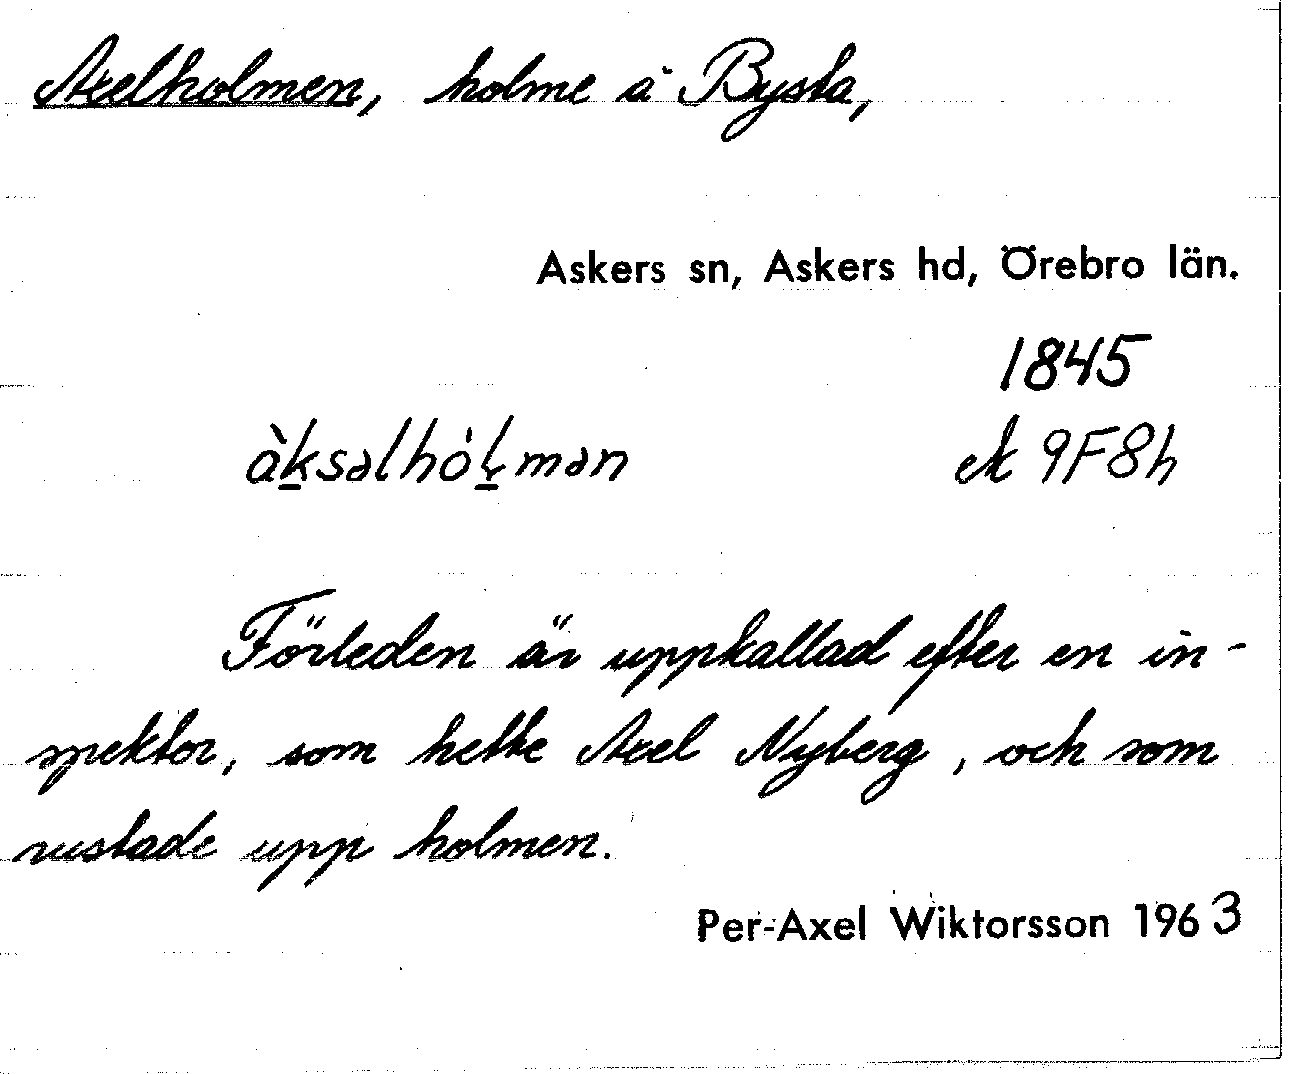 Axelholmen, holme å Bysta,
Askers sn, Askers hd, Örebro län.
1845
àksəlhól̥mən ek 9F8h
Förleden är uppkallad efter en in-
spektor, som hette Axel Nyberg, och som
rustade upp holmen.
Per-Axel Wiktorsson 1963